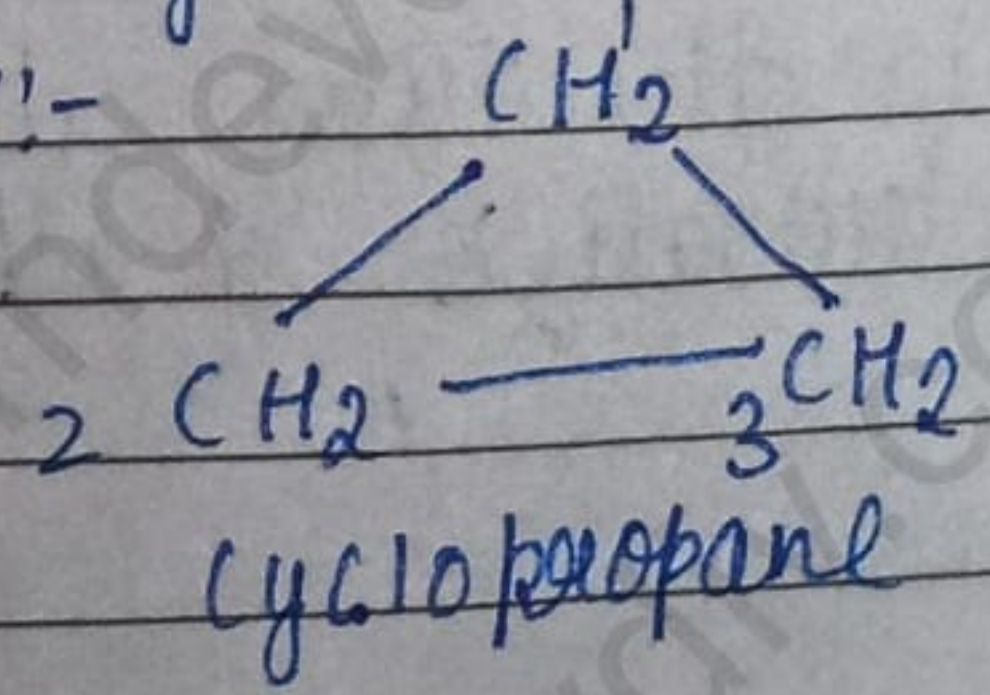 1
:-
CH2
2 CH2 3 CH2
Cyclopropane